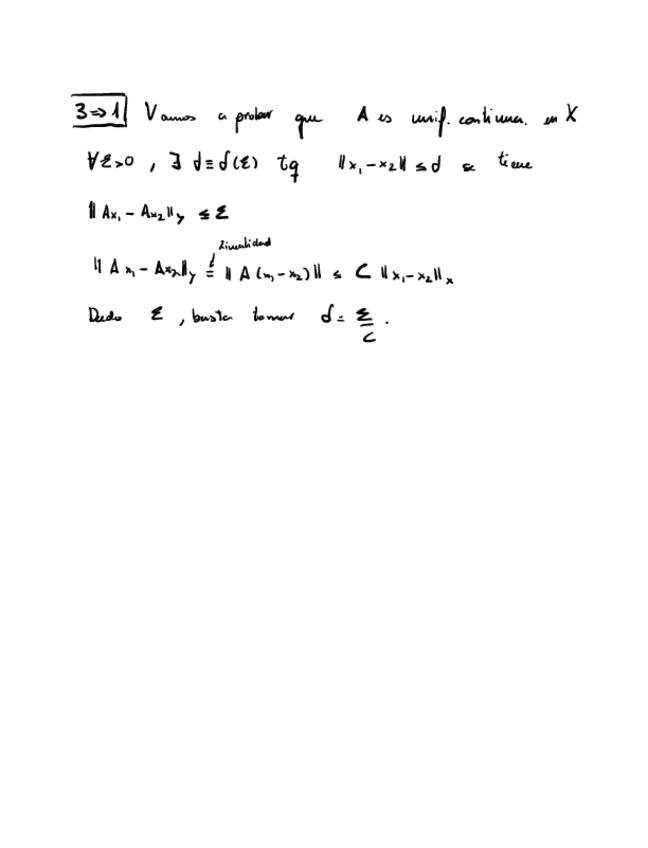 3⇒1 Vamos a probar que A es unif. continua. en X
∀ε>0 , ∃ δ≡δ(ε) tq ‖x₁-x₂‖ ≤ δ se tiene
‖Ax₁ - Ax₂‖_y ≤ ε
linealidad
‖Ax₁ - Ax₂‖_y = ‖A(x₁-x₂)‖ ≤ C ‖x₁-x₂‖_x
Dado ε , basta tomar δ = ε/C .